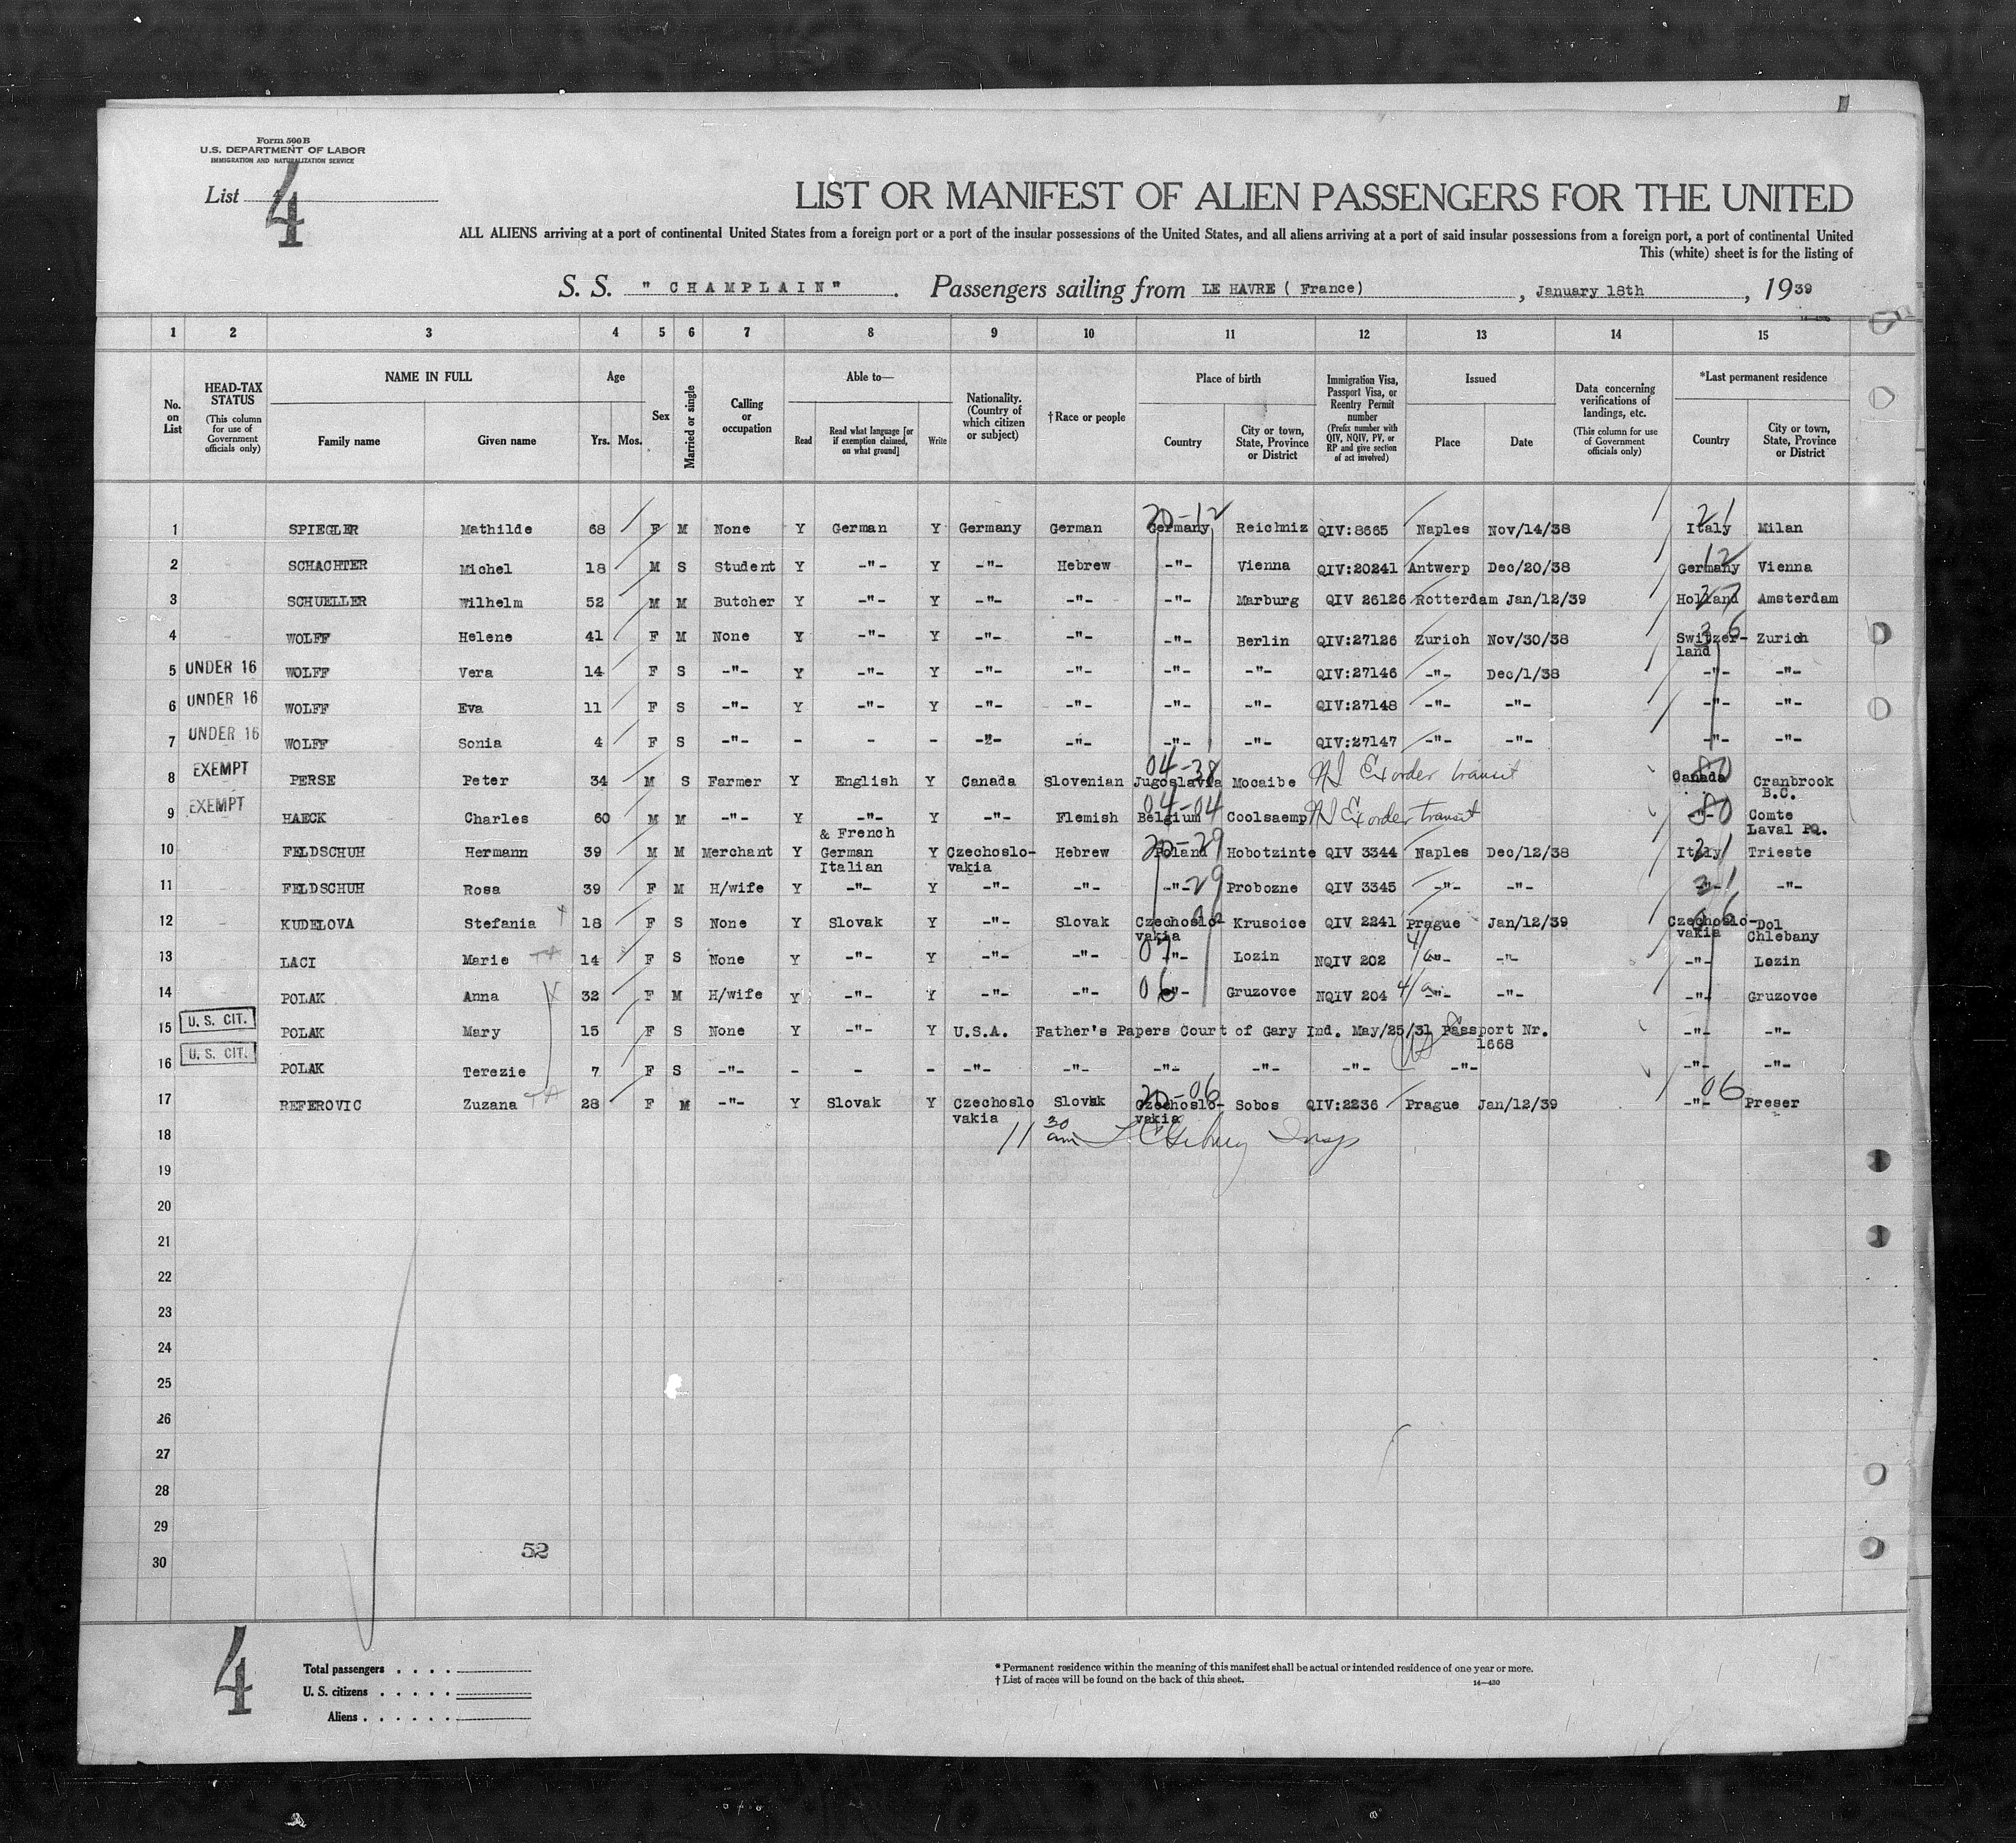 Form 500 B
U.S. DEPARTMENT OF LABOR
IMMIGRATION AND NATURALIZATION SERVICE
List 4
LIST OR MANIFEST OF ALIEN PASSENGERS FOR THE UNITED
ALL ALIENS arriving at a port of continental United States from a foreign port or a port of the insular possessions of the United States, and all aliens arriving at a port of said insular possessions from a foreign port, a port of continental United
This (white) sheet is for the listing of
S. S. " CHAMPLAIN " . Passengers sailing from LE HAVRE ( France) , January 18th , 1939
1 2 3 4 5 6 7 8 9 10 11 12 13 14 15
No. on List
HEAD-TAX STATUS (This column for use of Government officials only)
NAME IN FULL Family name Given name
Age Yrs. Mos.
Sex
Married or single
Calling or occupation
Able to— Read Read what language [or if exemption claimed, on what ground] Write
Nationality. (Country of which citizen or subject)
† Race or people
Place of birth Country City or town, State, Province or District
Immigration Visa, Passport Visa, or Reentry Permit number (Prefix number with QIV, NQIV, PV, or RP and give section of act involved)
Issued Place Date
Data concerning verifications of landings, etc. (This column for use of Government officials only)
*Last permanent residence Country City or town, State, Province or District
1 SPIEGLER Mathilde 68 F M None Y German Y Germany German Germany 20-12 Reichniz QIV:8665 Naples Nov/14/38 Italy 21 Milan
2 SCHACHTER Michel 18 M S Student Y -"- Y -"- Hebrew -"- Vienna QIV:20241 Antwerp Dec/20/38 Germany 12 Vienna
3 SCHUELLER Wilhelm 52 M M Butcher Y -"- Y -"- -"- -"- Marburg QIV 26126 Rotterdam Jan/12/39 Holland Amsterdam
4 WOLFF Helene 41 F M None Y -"- Y -"- -"- -"- Berlin QIV:27126 Zurich Nov/30/38 Switzer-land 36 Zurich
5 UNDER 16 WOLFF Vera 14 F S -"- Y -"- Y -"- -"- -"- -"- QIV:27146 -"- Dec/1/38 -"- -"-
6 UNDER 16 WOLFF Eva 11 F S -"- Y -"- Y -"- -"- -"- -"- QIV:27148 -"- -"- -"- -"-
7 UNDER 16 WOLFF Sonia 4 F S -"- - - - -"- -"- -"- -"- QIV:27147 -"- -"- -"- -"-
8 EXEMPT PERSE Peter 34 M S Farmer Y English Y Canada Slovenian Jugoslavia 04-38 Mocaibe Ex order transit Canada 80 Cranbrook B.C.
9 EXEMPT HAECK Charles 60 M M -"- Y -"- & French Y -"- Flemish Belgium 04-04 Coolsaemp Ex order transit -"- 80 Comte Laval PQ.
10 FELDSCHUH Hermann 39 M M Merchant Y German Italian Y Czechoslo-vakia Hebrew Poland 20-29 Hobotzinte QIV 3344 Naples Dec/12/38 Italy 21 Trieste
11 FELDSCHUH Rosa 39 F M H/wife Y -"- Y -"- -"- -"- 29 Probozne QIV 3345 -"- -"- -"- -"-
12 KUDELOVA Stefania 18 F S None Y Slovak Y -"- Slovak Czechoslo-vakia Krusoice QIV 2241 Prague Jan/12/39 Czechoslo-vakia 06 Dol Chlebany
13 LACI Marie 14 F S None Y -"- Y -"- -"- -"- Lozin NQIV 202 -"- -"- -"- Lozin
14 POLAK Anna 32 F M H/wife Y -"- Y -"- -"- 06 -"- Gruzovce NQIV 204 -"- -"- -"- Gruzovce
15 U. S. CIT. POLAK Mary 15 F S None Y -"- Y U.S.A. Father's Papers Court of Gary Ind. May/25/31 Passport Nr. 1668 -"- -"-
16 U. S. CIT. POLAK Terezie 7 F S -"- - - - -"- -"- -"- -"- -"- -"- -"- -"-
17 REFEROVIC Zuzana 28 F M -"- Y Slovak Y Czechoslo vakia Slovak Czechoslo-vakia 20-06 Sobos QIV:2236 Prague Jan/12/39 -"- 06 Preser
18 11 30 am Insp
19
20
21
22
23
24
25
26
27
28
29
30
52
4
Total passengers . . . .
U. S. citizens . . . . .
Aliens . . . . . .
* Permanent residence within the meaning of this manifest shall be actual or intended residence of one year or more.
† List of races will be found on the back of this sheet.
14—430